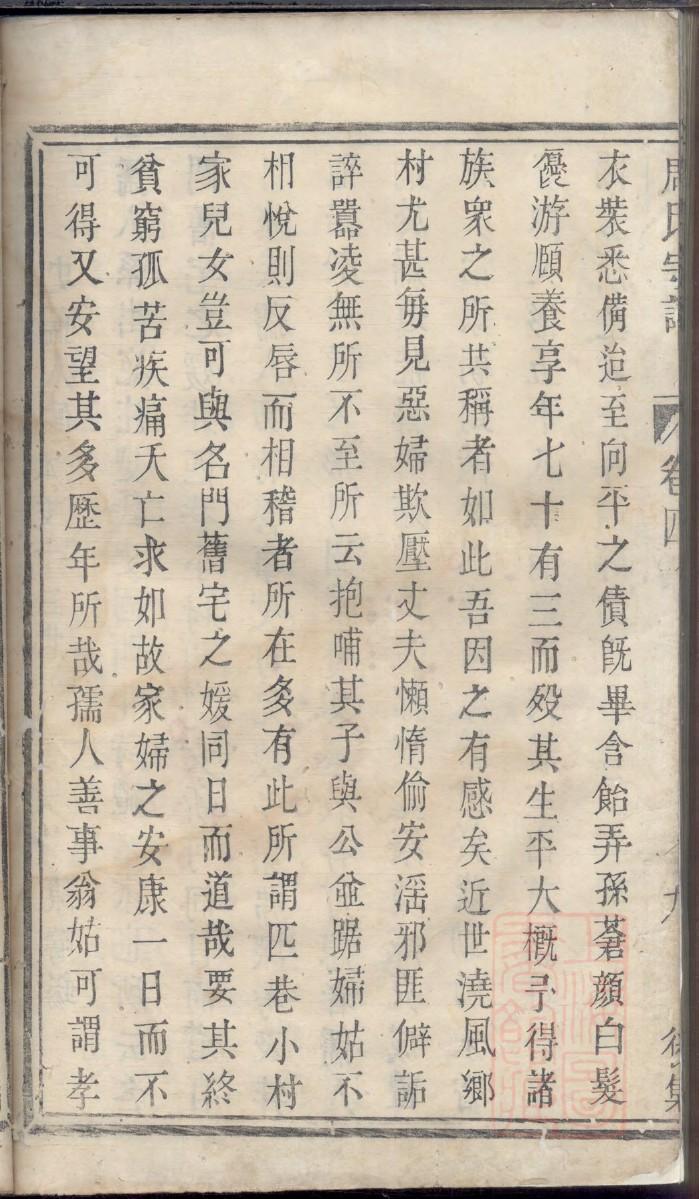 周氏宗譜 卷四 九
衣裝悉備迨至向平之債旣畢含飴弄孫蒼顏白髮
優游頤養享年七十有三而殁其生平大槪予得諸
族衆之所共稱者如此吾因之有感矣近世澆風鄉
村尤甚每見惡婦欺壓丈夫懶惰偷安滛邪匪僻詬
誶囂凌無所不至所云抱哺其子與公並踞婦姑不
相悅則反唇而相稽者所在多有此所謂匹巷小村
家兒女豈可與名門舊宅之媛同日而道哉要其終
貧窮孤苦疾痛夭亡求如故家婦之安康一日而不
可得又安望其多歷年所哉孺人善事翁姑可謂孝